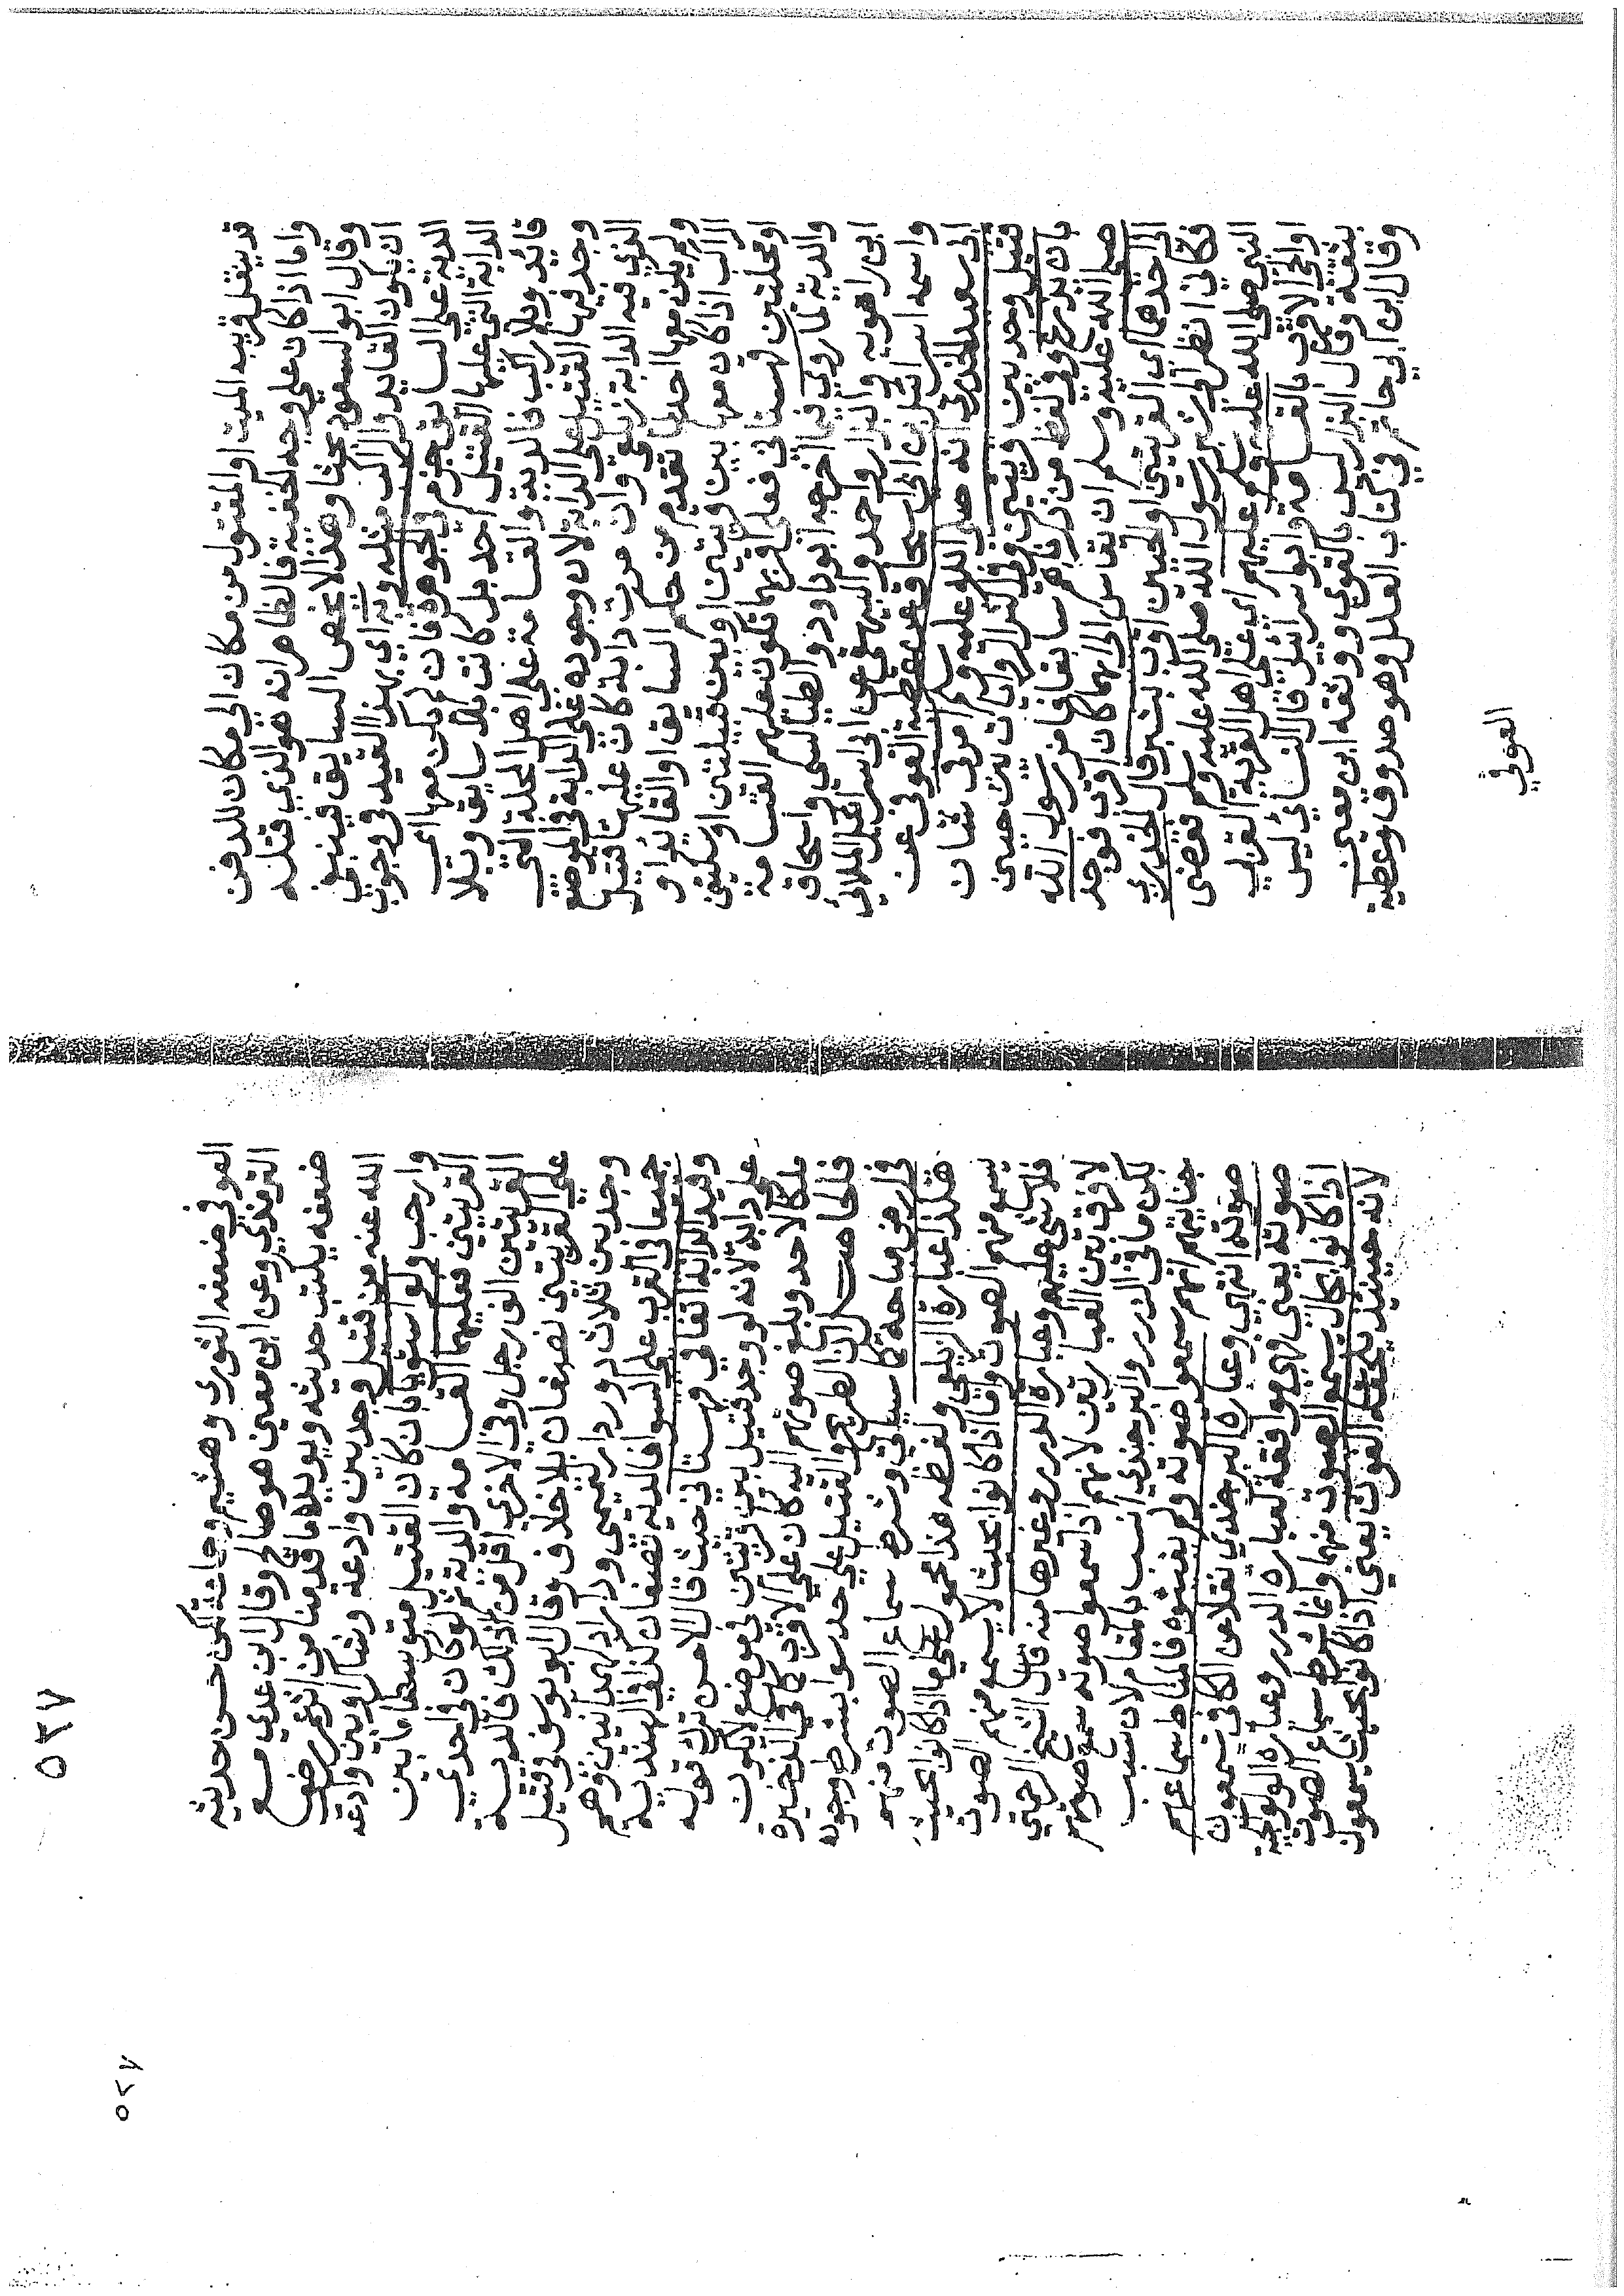 قد ينقل قريبه الميت او المقتول من مكان الى مكان للدفن
واما اذا كان على وجه الخفية فالظاهر انه هو الذي قتله
وقال ابو السعود بحثا وهذا لا يخص السايق فينبغي
ان يكون القايد والراكب مثله وبه اي بهذا القيد في وجوب
الدية على السايق جزم في الجوهرة فان لم يكن معها اي
الدابة التي عليها القتيل احد بل كانت بلا سايق وبلا
قايد وبلا راكب فالدية والقسامة على اهل المحلة التي
وجد فيها القتيل على الدابة لان وجوده على الدابة في الموضع
الذي فيه الدابة زيلعي وان مرت دابة كان عليها قتيل
ولم يكن معها احد لما تقدم من حكم السايق او القايد او
الراكب اذا كان معها بين قريتين او بين قبيلتين او سكتين
او محلتين قهستاني فعلى اقربهما تكون عليهم القسامة
والدية لما روى فيما اخرجه ابو داود والطيالسي واسحاق
ابن راهويه والبزار واحمد والبيهقي عن ابي اسرائيل الملائي
واسمه اسرائيل بن ابي اسحاق عن عطية العوفي عن
ابي سعيد الخدري انه صلى الله عليه وسلم امر في شان
قتيل وجد بين قريتين وفي اكثر الروايات بين حيين
بان يذرع وفي لفظ من ذرع سابقا فامر رسول الله
صلى الله عليه وسلم ان تقاس الى ايهما كان اقرب فوجد
الى احدهما اي القريتين او الحيين اقرب بشبر قال الخدري
فكاني انظر الى شبر رسول الله صلى الله عليه وسلم فقضى
النبي صلى الله عليه وسلم عليهم اي على اهل القرية القربى
او الحي الاقرب بالقسامة وابو اسرائيل قال النسائي ليس
بثقة وقال البزار ليس بالقوي ووثقه ابن معين
وقال ابن ابي حاتم في كتاب العلل وهو صدوق وعطية
العوفي
العوفي ضعفه الثوري وهشيم وحاشه لكن حسن حديثه
الترمذي وعن ابن معين هو صالح وقال ابن عدي مع
ضعفه يكتب حديثه ويؤيده ما قدمنا من اثر عمر رضي
الله عنه من قتيل وجد بين وادعة وشاكر وبين وادعة
وارحب ولو استويا بان كان القتيل متوسطا ما بين
القريتين فعليهما القسامة والدية ثم لو كان في احدى
القريتين الف رجل وفي الاخرى اقل من ذلك فالدية
على القريتين نصفان بلا خلاف وقال ابو يوسف وقتيل
وجد بين ثلاث دور دار لتميمي وداران لهمدانيين وهم
جميعا في القرب على السوا فالدية نصفان كذا في الهندية
وقيد الدابة اتفاقي قهستاني حيث قال الاحسن ترك قوله
على دابة لانه لو وجد قتيل بين قريتين في موضع لا يكون
ملكا لاحد وبلغ صوتهم اليه كان على الاقرب كما في الذخيرة
فالحاصل ان الطريح والقتيل على حد سوا بشرط وجوده
في ارض مباحة كما سيأتي وشرط سماع الصوت منهم
هكذا عبارة الزيلعي ولفظه هذا محمول على ما اذا كانوا بحيث
يسمع منهم الصوت واما اذا كانوا بحيث لا يسمع منهم الصوت
فلا شي عليهم وعبارة الدرر وغيرها منه قال الشيخ الرحمتي
لا فرق بين العبارتين لانهم اذا سمعوا صوته سمع صوتهم
لكن ما في الدرر والبرجندي انسب بالمقام لان سبب
جنايتهم انهم سمعوا صوته ولم يغيثوه فالمناط سماعهم
صوته انتهى وعبارة البرجندي نقلا عن الكافي يسمعون
صوته يعني فهي موافقة لعبارة الدرر وعبارة الولوالجية
اذا كانوا بحال يسمع الصوت منهما وانما شرط سماع الصوت
لانه حينئذ يلحقه الغوث يعني اذا كانوا بحيث يسمعون
٥٢٧
٥٢٧